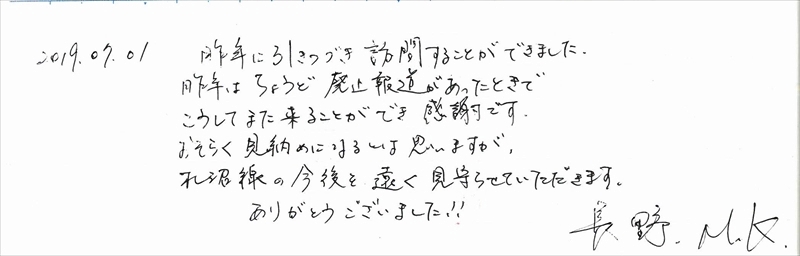 2019.07.01 昨年に引きつづき訪問することができました.
昨年はちょうど廃止報道があったときで
こうしてまた来ることができ感謝です.
おそらく見納めになるとは思いますが,
札沼線の今後を遠く見守らせていただきます.
ありがとうございました!!
長野. M.K.